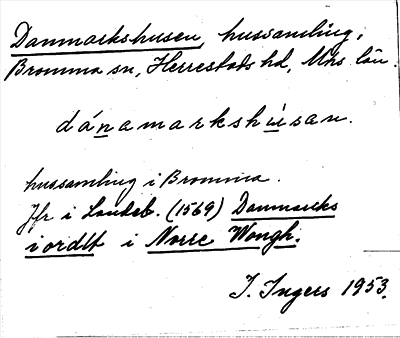 Danmarkshusen, hussamling,
Bromma sn, Herrestads hd, Mhs län.
dánamarkshùsan.
hussamling i Bromma.
Jfr i Landeb. (1569) Danmarks
iordt i Norre Wongh.
I. Ingers 1953.